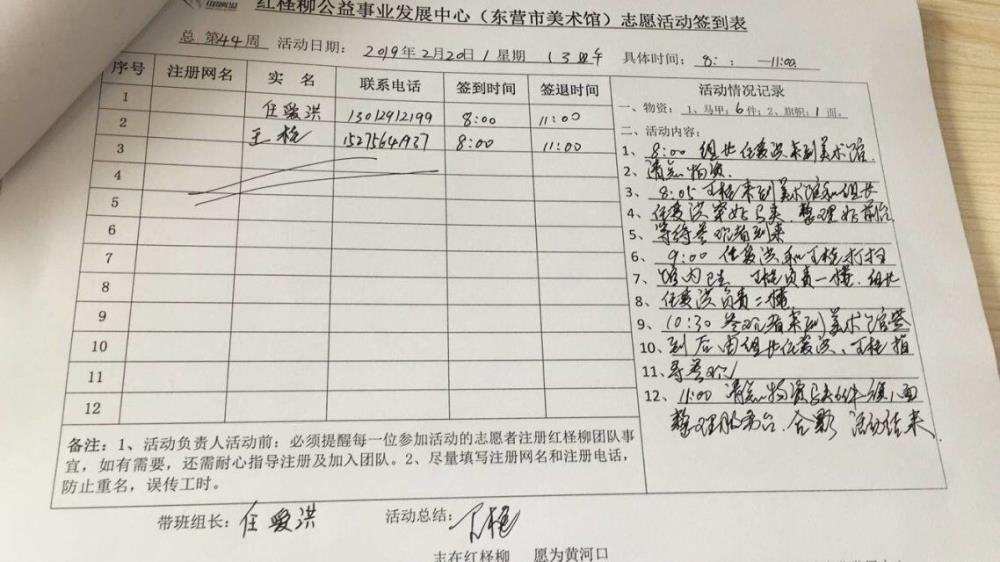 红柽柳公益事业发展中心（东营市美术馆）志愿活动签到表
总 第44周 活动日期： 2019年2月20日 星期 （3） 具体时间： 8： ： —11:00
序号 注册网名 实 名 联系电话 签到时间 签退时间 活动情况记录
1 任爱洪 13012912199 8:00 11:00
2 王柽 15275641937 8:00 11:00
3
4
5
6
7
8
9
10
11
12
一、物资： 1、马甲：6件；2、旗帜：1面。
二、活动内容：
1、8:00 组长任爱洪来到美术馆
2、清点物资.
3、8:05 王柽来到美术馆和组长
4、任爱洪穿好马夹.整理好前台
5、等待参观者到来
6、9:00 任爱洪和王柽打扫
7、馆内卫生 王柽负责一楼.组长
8、任爱洪负责二楼
9、10:30 参观者来到美术馆签
10、到后由组长任爱洪、王柽指
11、导参观
12、11:00 清点物资马夹6件旗1面
整理服务台.合影 活动结束.
备注：1、活动负责人活动前：必须提醒每一位参加活动的志愿者注册红柽柳团队事
宜，如有需要，还需耐心指导注册及加入团队。2、尽量填写注册网名和注册电话，
防止重名，误传工时。
带班组长：任爱洪 活动总结：王柽
志在红柽柳 愿为黄河口